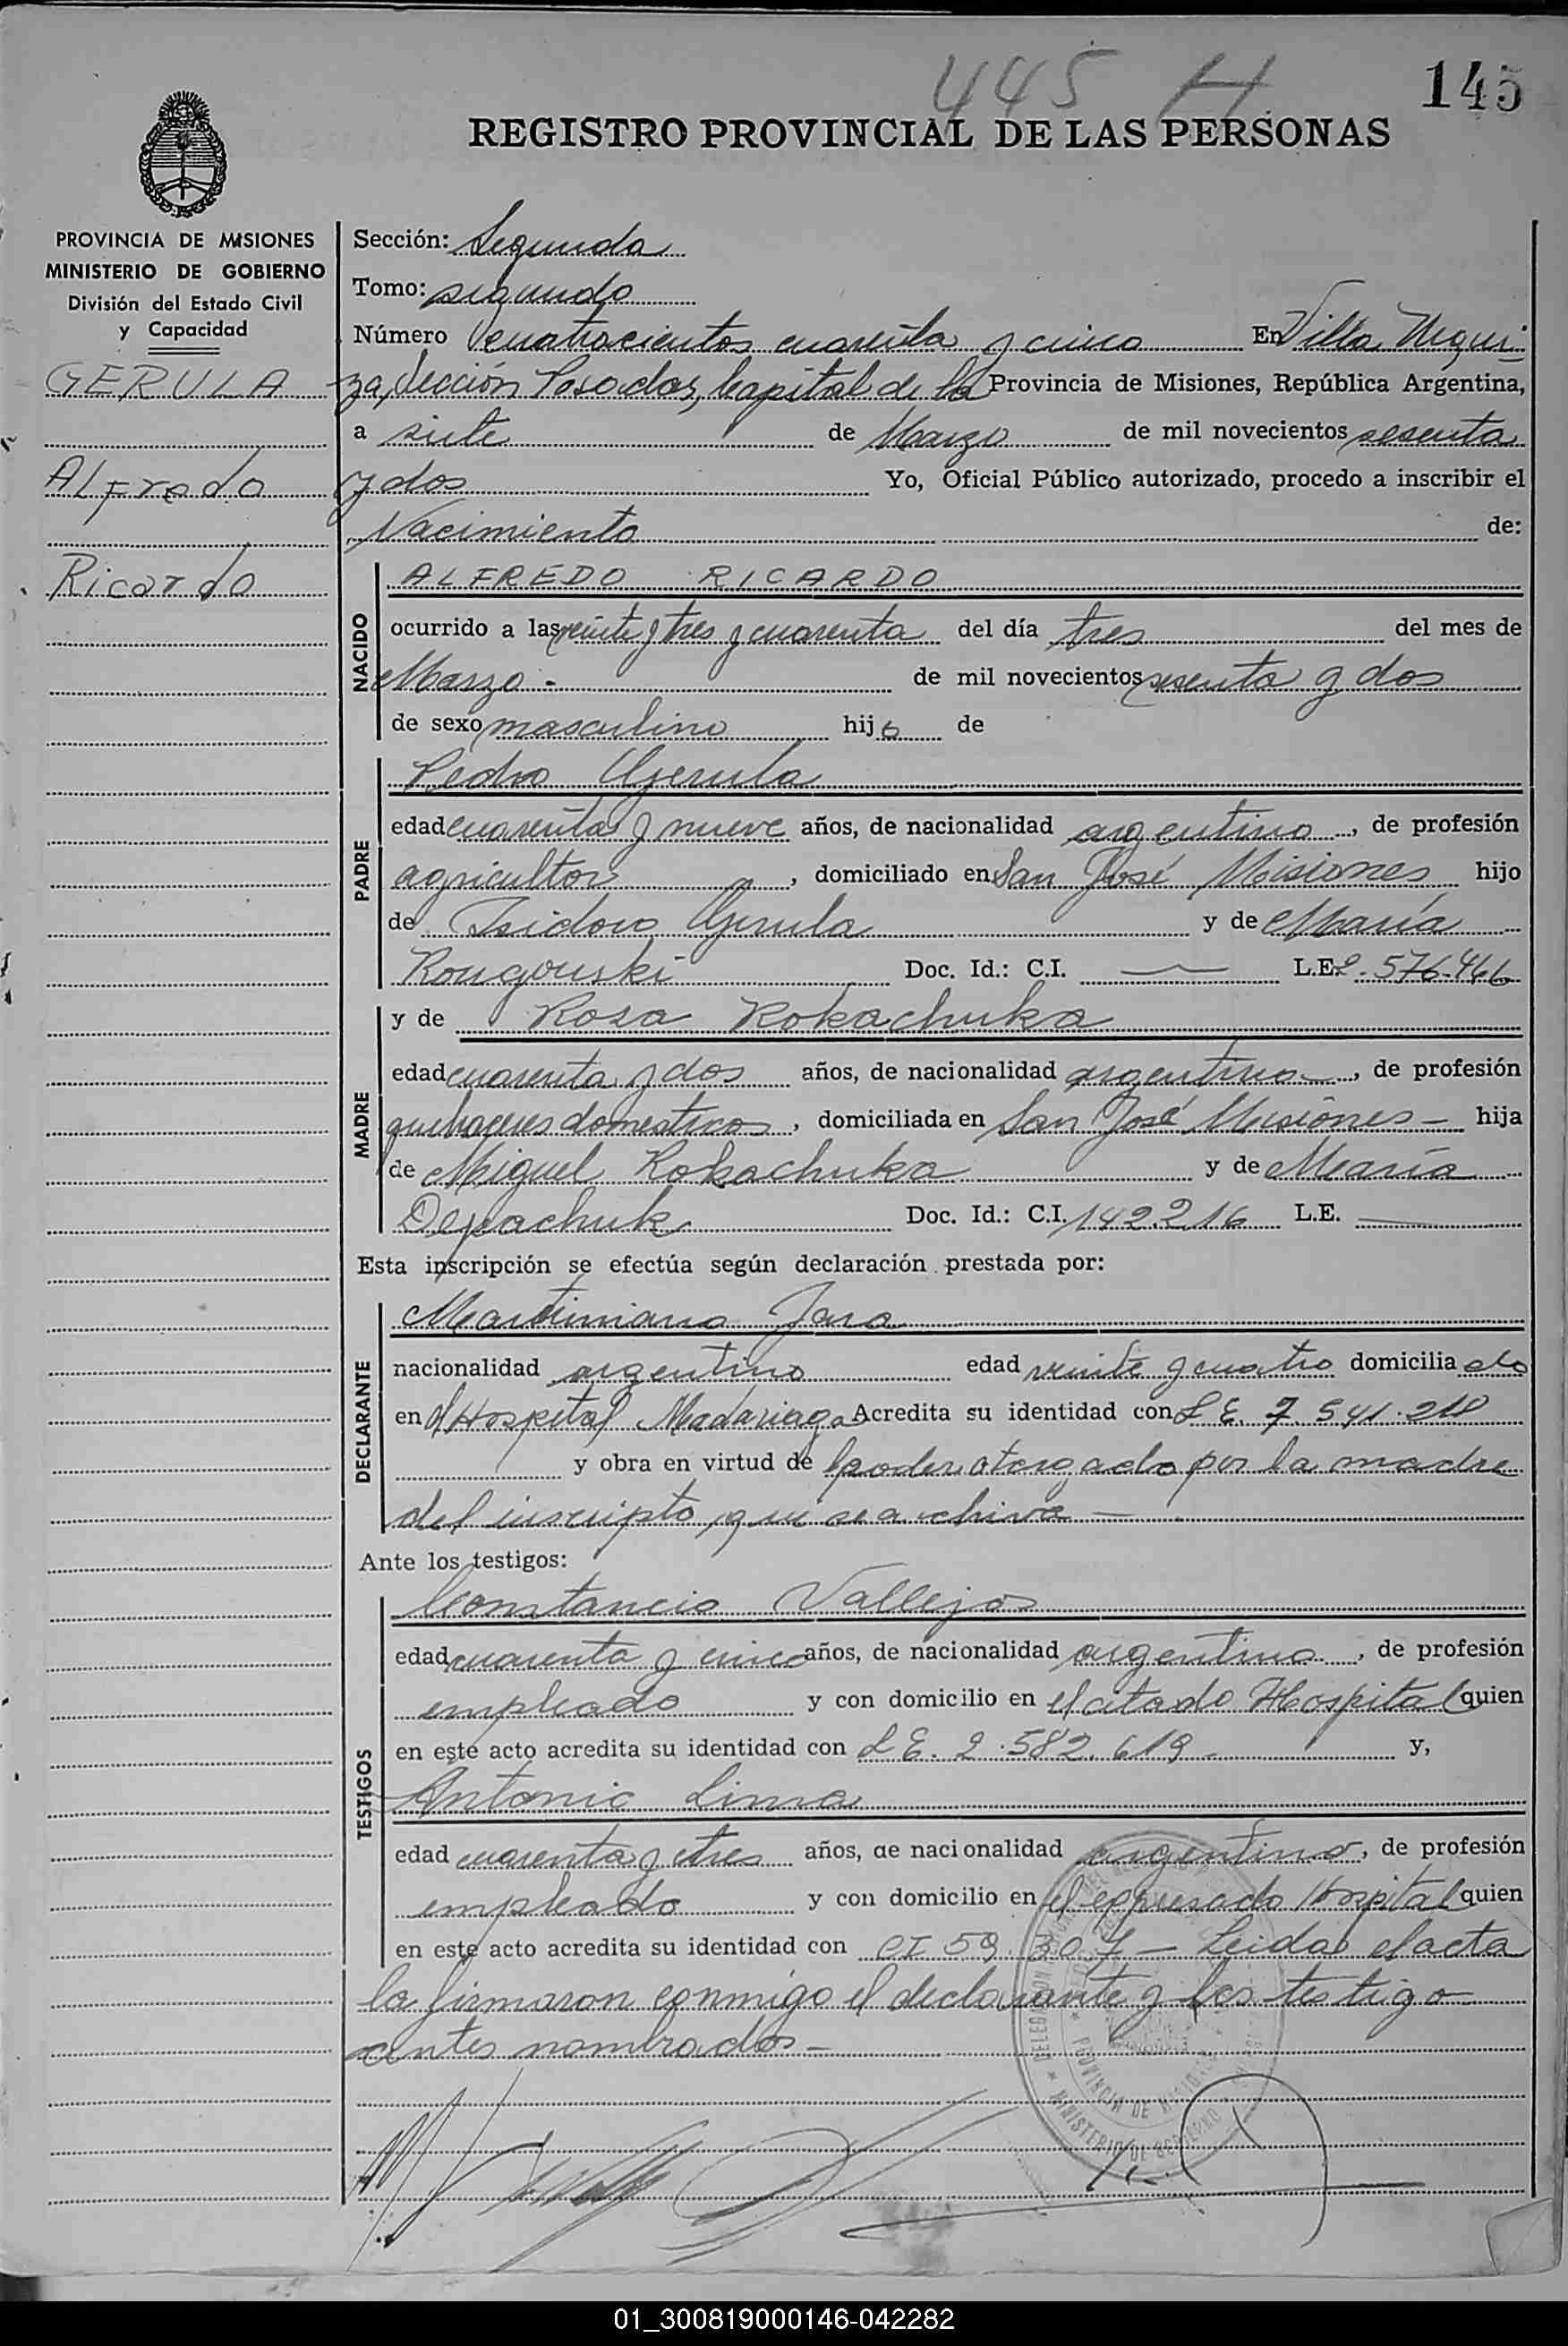 445 H
145
REGISTRO PROVINCIAL DE LAS PERSONAS
PROVINCIA DE MISIONES
MINISTERIO DE GOBIERNO
División del Estado Civil
y Capacidad
GERULA
Alfredo
Ricardo
Sección: Segunda
Tomo: segundo
Número cuatrocientos cuarenta y cinco En Villa Urqui
za, Sección Posadas, Capital de la Provincia de Misiones, República Argentina,
a siete de Marzo de mil novecientos sesenta
y dos Yo, Oficial Público autorizado, procedo a inscribir el
Nacimiento de:
NACIDO
ALFREDO RICARDO
ocurrido a las veinte y tres y cuarenta del día tres del mes de
Marzo - de mil novecientos sesenta y dos
de sexo masculino hijo de
PADRE
Pedro Gerula
edad cuarenta y nueve años, de nacionalidad argentino, de profesión
agricultor, domiciliado en San José Misiones hijo
de Isidoro Gerula y de María
Rougouski Doc. Id.: C.I. — L.E. 2.576.446
MADRE
y de Rosa Kokachuka
edad cuarenta y dos años, de nacionalidad argentina, de profesión
quehaceres domesticos, domiciliada en San José Misiones - hija
de Miguel Kokachuka y de María
Depachuk Doc. Id.: C.I. 142.216 L.E. —
Esta inscripción se efectúa según declaración prestada por:
DECLARANTE
Martiniano Jara
nacionalidad argentino edad veinte y cuatro domiciliado
en el Hospital Madariaga Acredita su identidad con L E. 7.541.210
y obra en virtud de poder otorgado por la madre
del inscripto, que se archiva —
Ante los testigos:
TESTIGOS
Constancio Vallejos
edad cuarenta y cinco años, de nacionalidad argentino, de profesión
empleado y con domicilio en el citado Hospital quien
en este acto acredita su identidad con L E. 2.582.619 - y,
Antonio Lima
edad cuarenta y tres años, de nacionalidad argentino, de profesión
empleado y con domicilio en el expresado Hospital quien
en este acto acredita su identidad con CI 59.307 — Leida el acta
la firmaron conmigo el declarante y los testigo
antes nombrados —
PROVINCIA DE MISIONES
MINISTERIO DE GOBIERNO
01_300819000146-042282